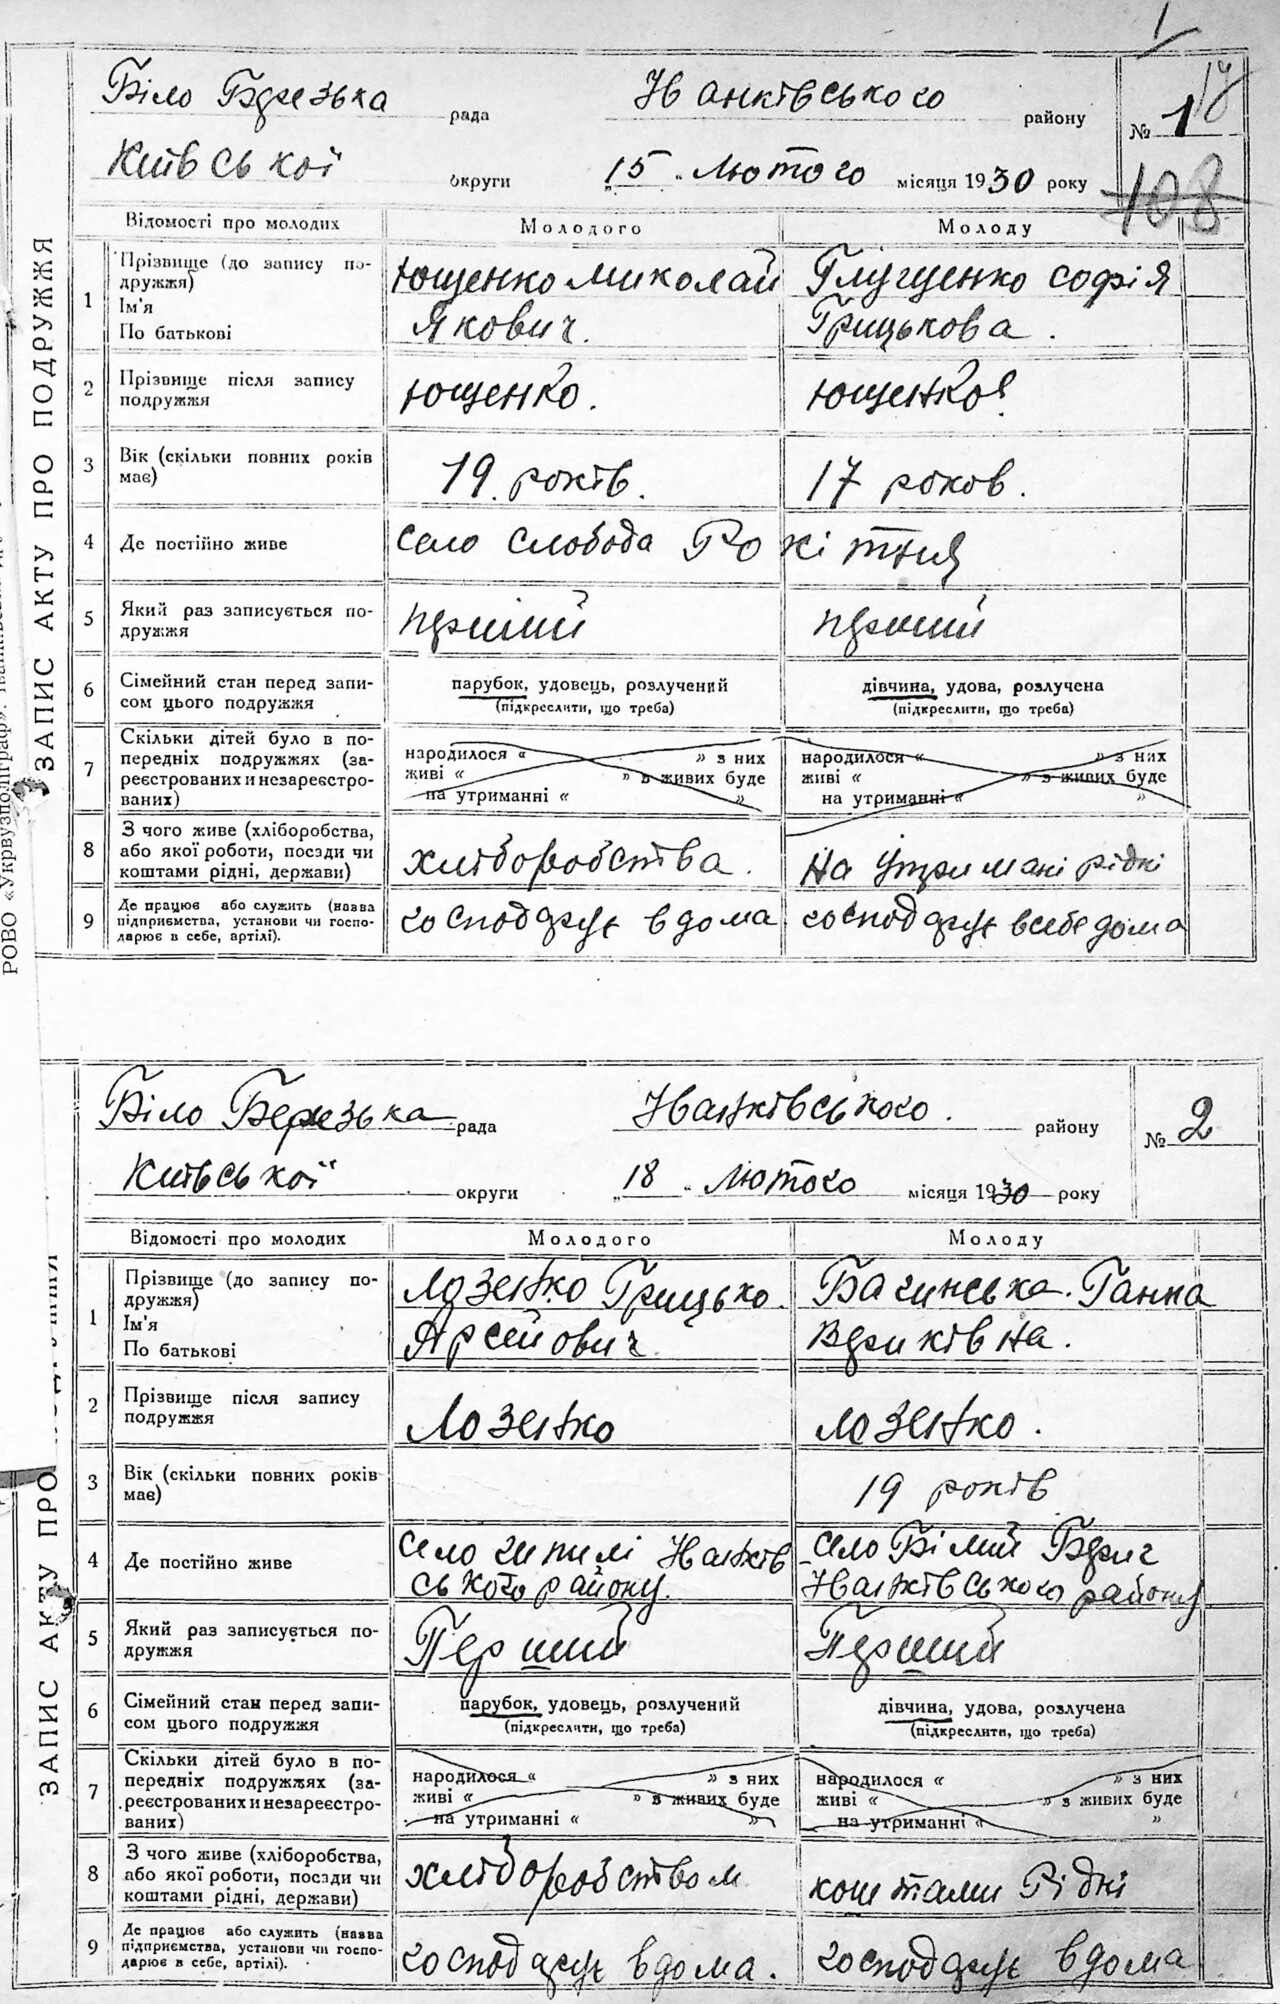 1
Біло Бережська рада Іванківського району № 1 17
Київської округи „15„ Лютого місяця 1930 року 108
ЗАПИС АКТУ ПРО ПОДРУЖЖЯ
Відомості про молодих Молодого Молоду
1 Прізвище (до запису по- Ющенко Миколай Глущенко Софія
дружжя)
Ім'я
По батькові Якович. Грицькова.
2 Прізвище після запису Ющенко. Ющенко
подружжя
3 Вік (скільки повних років 19 років. 17 роков.
має)
4 Де постійно живе село слобода Рокітня
5 Який раз записується по- перший перший
дружжя
6 Сімейний стан перед запи- парубок, удовець, розлучений дівчина, удова, розлучена
сом цього подружжя (підкреслити, що треба) (підкреслити, що треба)
7 Скільки дітей було в по-
передніх подружжях (за- народилося « » з них народилося « » з них
реєстрованих и незареєстро- живі « » в живих буде живі « » в живих буде
ваних) на утриманні « » на утриманні « »
8 З чого живе (хліборобства,
або якої роботи, посади чи хліборобства. на утримані рідні
коштами рідні, держави)
9 Де працює або служить (назва
підприємства, установи чи госпо- господарує вдома господарує всебе дома
дарює в себе, артілі).
РОВО «Укрвузполіграф».
Біло Бережська рада Іванківського. району № 2
Київської округи „18„ Лютого місяця 1930 року
ЗАПИС АКТУ ПРО
Відомості про молодих Молодого Молоду
1 Прізвище (до запису по- Лозенко Грицько. Багинська. Ганна
дружжя)
Ім'я
По батькові Арсейович Вериківна.
2 Прізвище після запису Лозенко Лозенко.
подружжя
3 Вік (скільки повних років 19 років
має)
4 Де постійно живе село Іванків село Білий Берег
ського району. Іванківського району
5 Який раз записується по- Перший Перший
дружжя
6 Сімейний стан перед запи- парубок, удовець, розлучений дівчина, удова, розлучена
сом цього подружжя (підкреслити, що треба) (підкреслити, що треба)
7 Скільки дітей було в по-
передніх подружжях (за- народилося « » з них народилося « » з них
реєстрованих и незареєстро- живі « » в живих буде живі « » в живих буде
ваних) на утриманні « » на утриманні « »
8 З чого живе (хліборобства,
або якої роботи, посади чи хліборобством коштами Рідні
коштами рідні, держави)
9 Де працює або служить (назва
підприємства, установи чи госпо- господарує вдома. господарує вдома
дарює в себе, артілі).